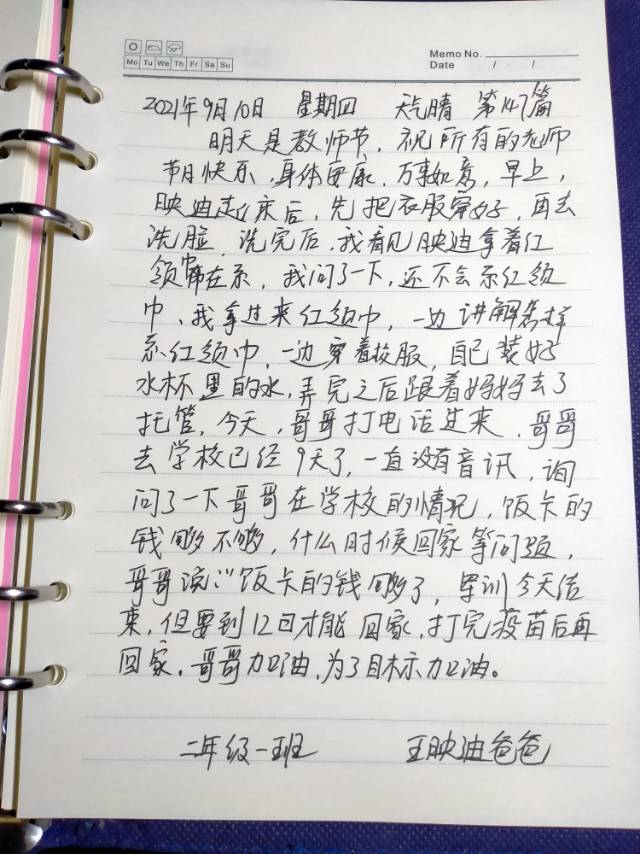 Mo Tu We Th Fr Sa Su
Memo No.
Date / /
2021年9月10日 星期四 天气晴 第147篇
明天是教师节，祝所有的老师
节日快乐，身体安康，万事如意，早上，
映迪起床后，先把衣服穿好，再去
洗脸，洗完后，我看见映迪拿着红
领巾在系，我问了一下，还不会系红领
巾、我拿过来红领巾，一边讲解怎样
系红领巾，一边穿着校服，自己装好
水杯里的水，弄完之后跟着妈妈去了
托管，今天，哥哥打电话过来，哥哥
去学校已经9天了，一直没有音讯，询
问了一下哥哥在学校的情况，饭卡的
钱够不够，什么时候回家等问题，
哥哥说："饭卡的钱够了，军训今天结
束，但要到12日才能回家，打完疫苗后再
回家，哥哥加油，为了目标加油。
二年级一班 王映迪爸爸